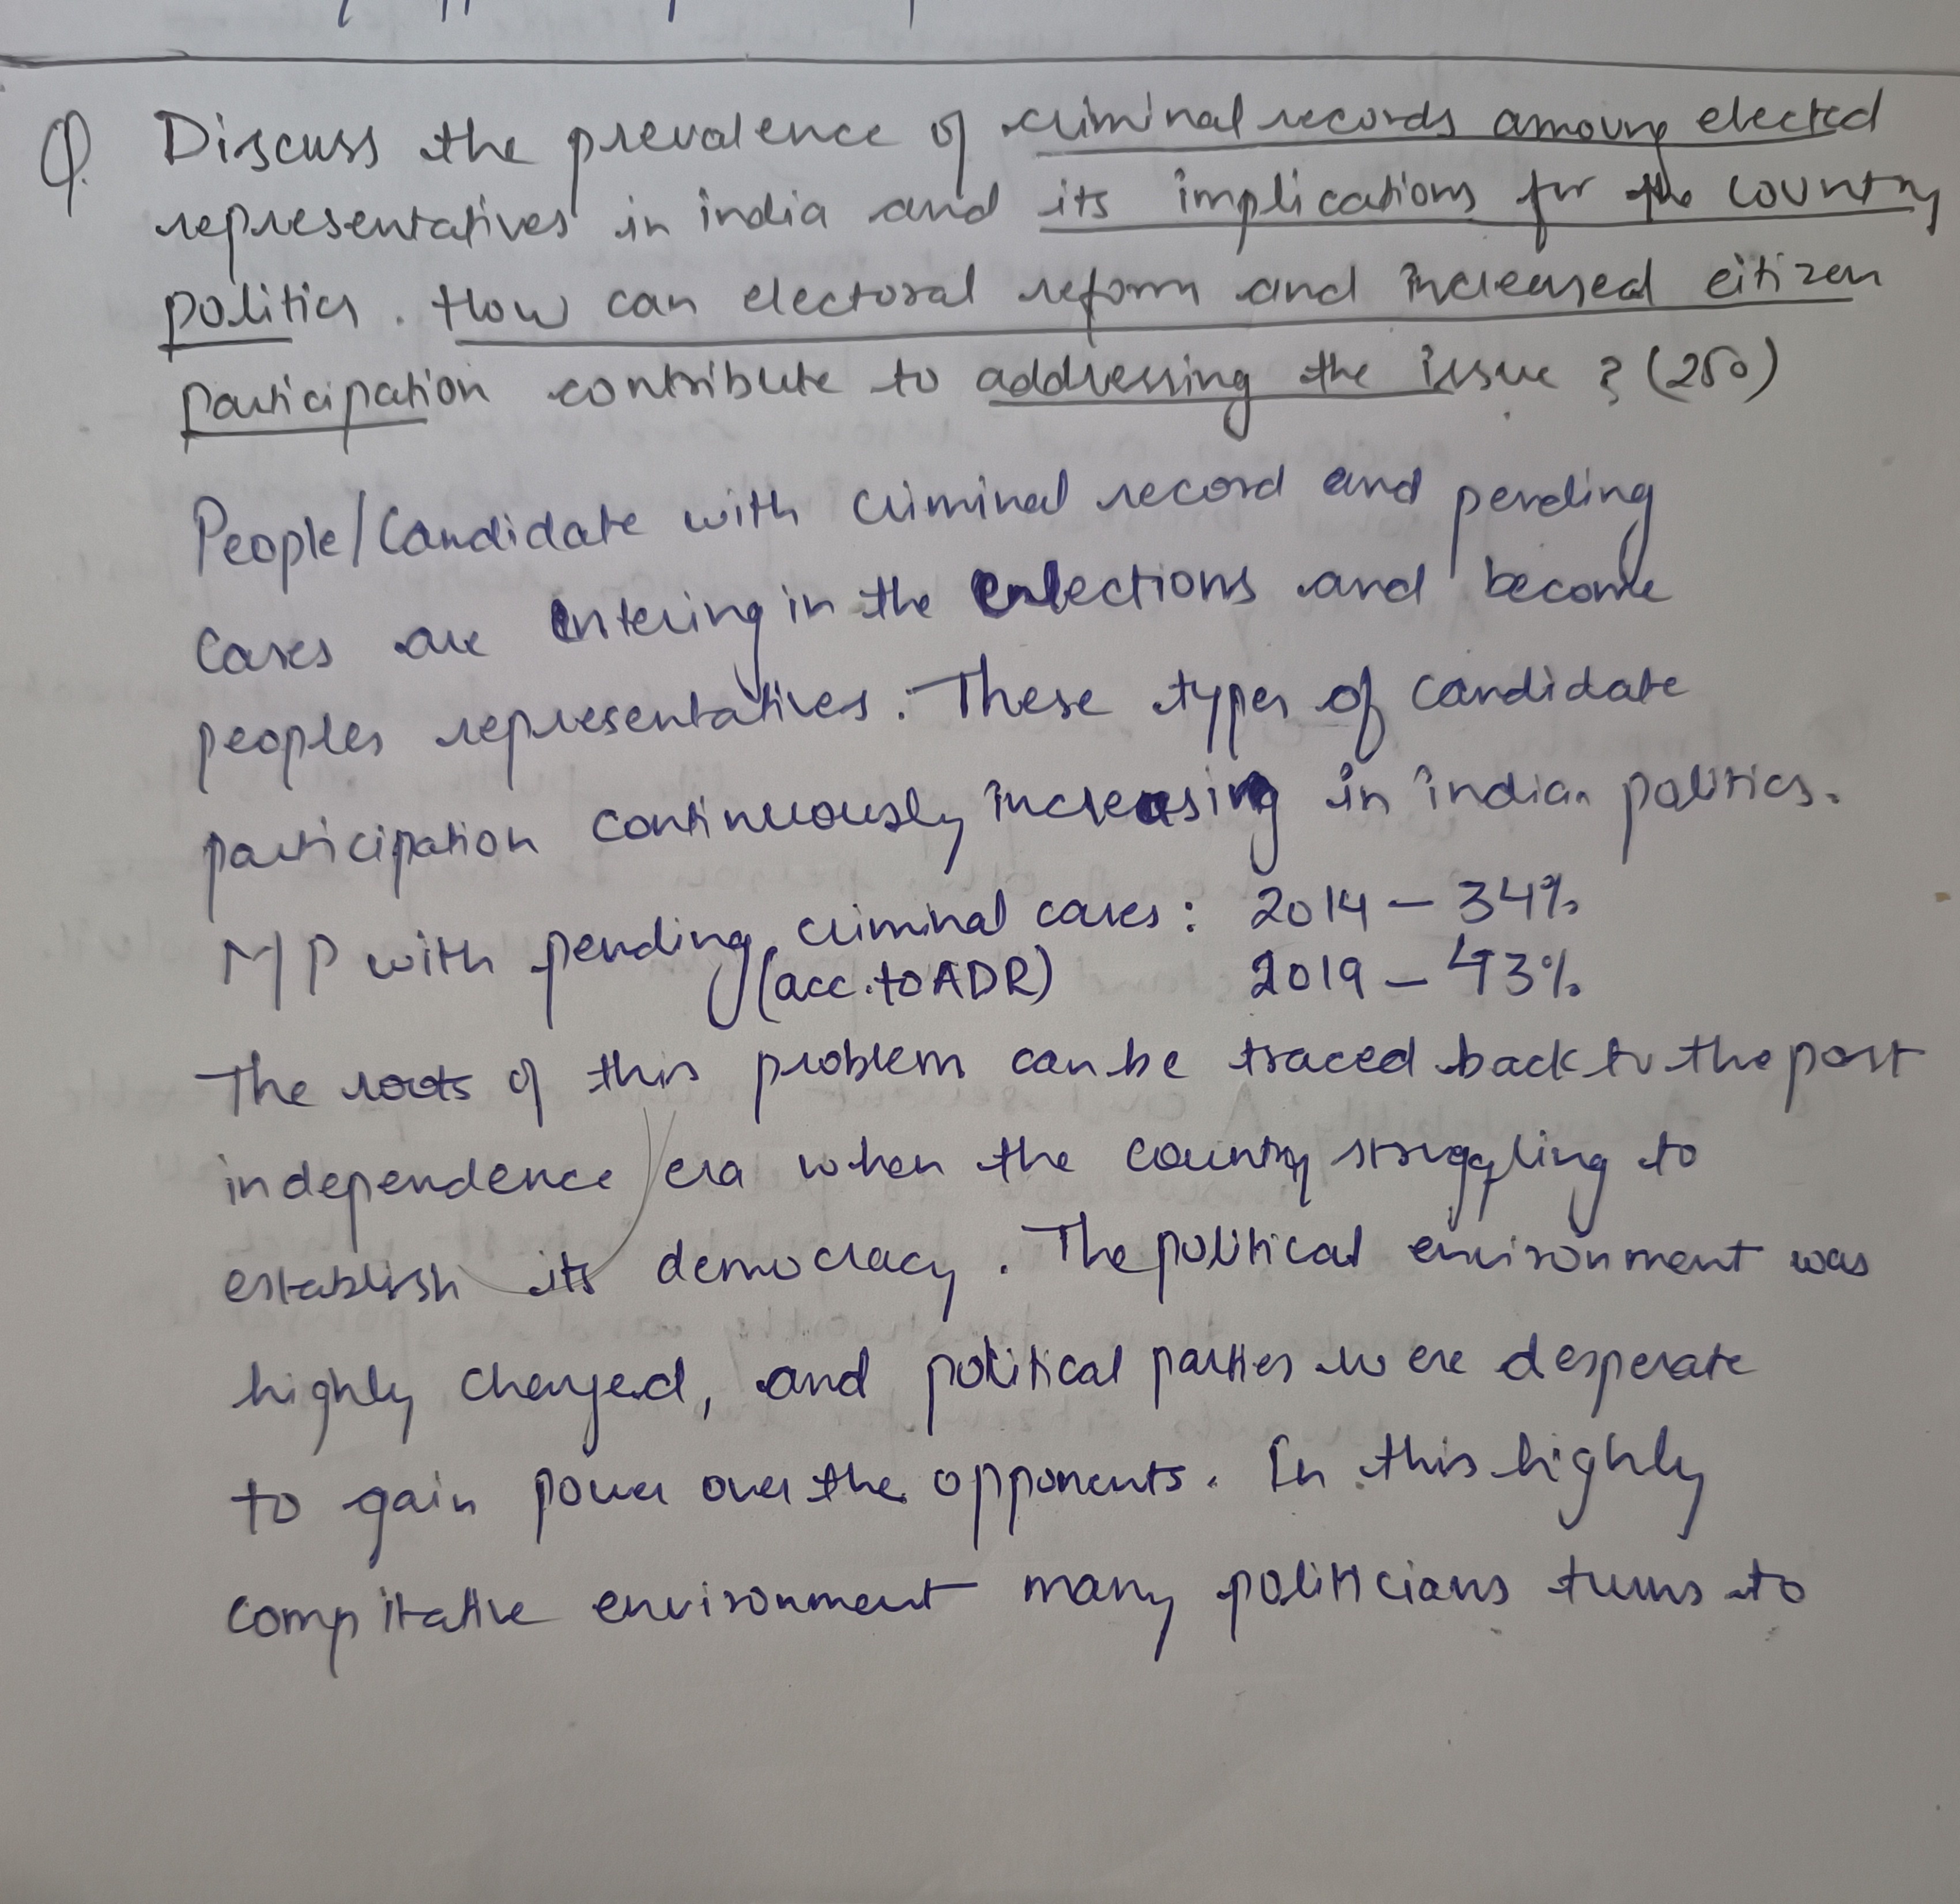 Q. Discuss the prevalence of criminal records amoung elected
representatives in india and its implications for the country
politics. How can electoral reform and increased citizen
participation contribute to addressing the issue ? (250)
People/Candidate with criminal record and pending
cases are entering in the elections and become
peoples representatives. These types of candidate
participation continuously increasing in indian politics.
MP with pending criminal cases: 2014 – 34%
(acc. to ADR) 2019 – 43%
The roots of this problem can be traced back to the post
independence era when the country struggling to
establish its democracy. The political environment was
highly charged, and political parties were desperate
to gain power over the opponents. In this highly
compitative environment many politicians turns to